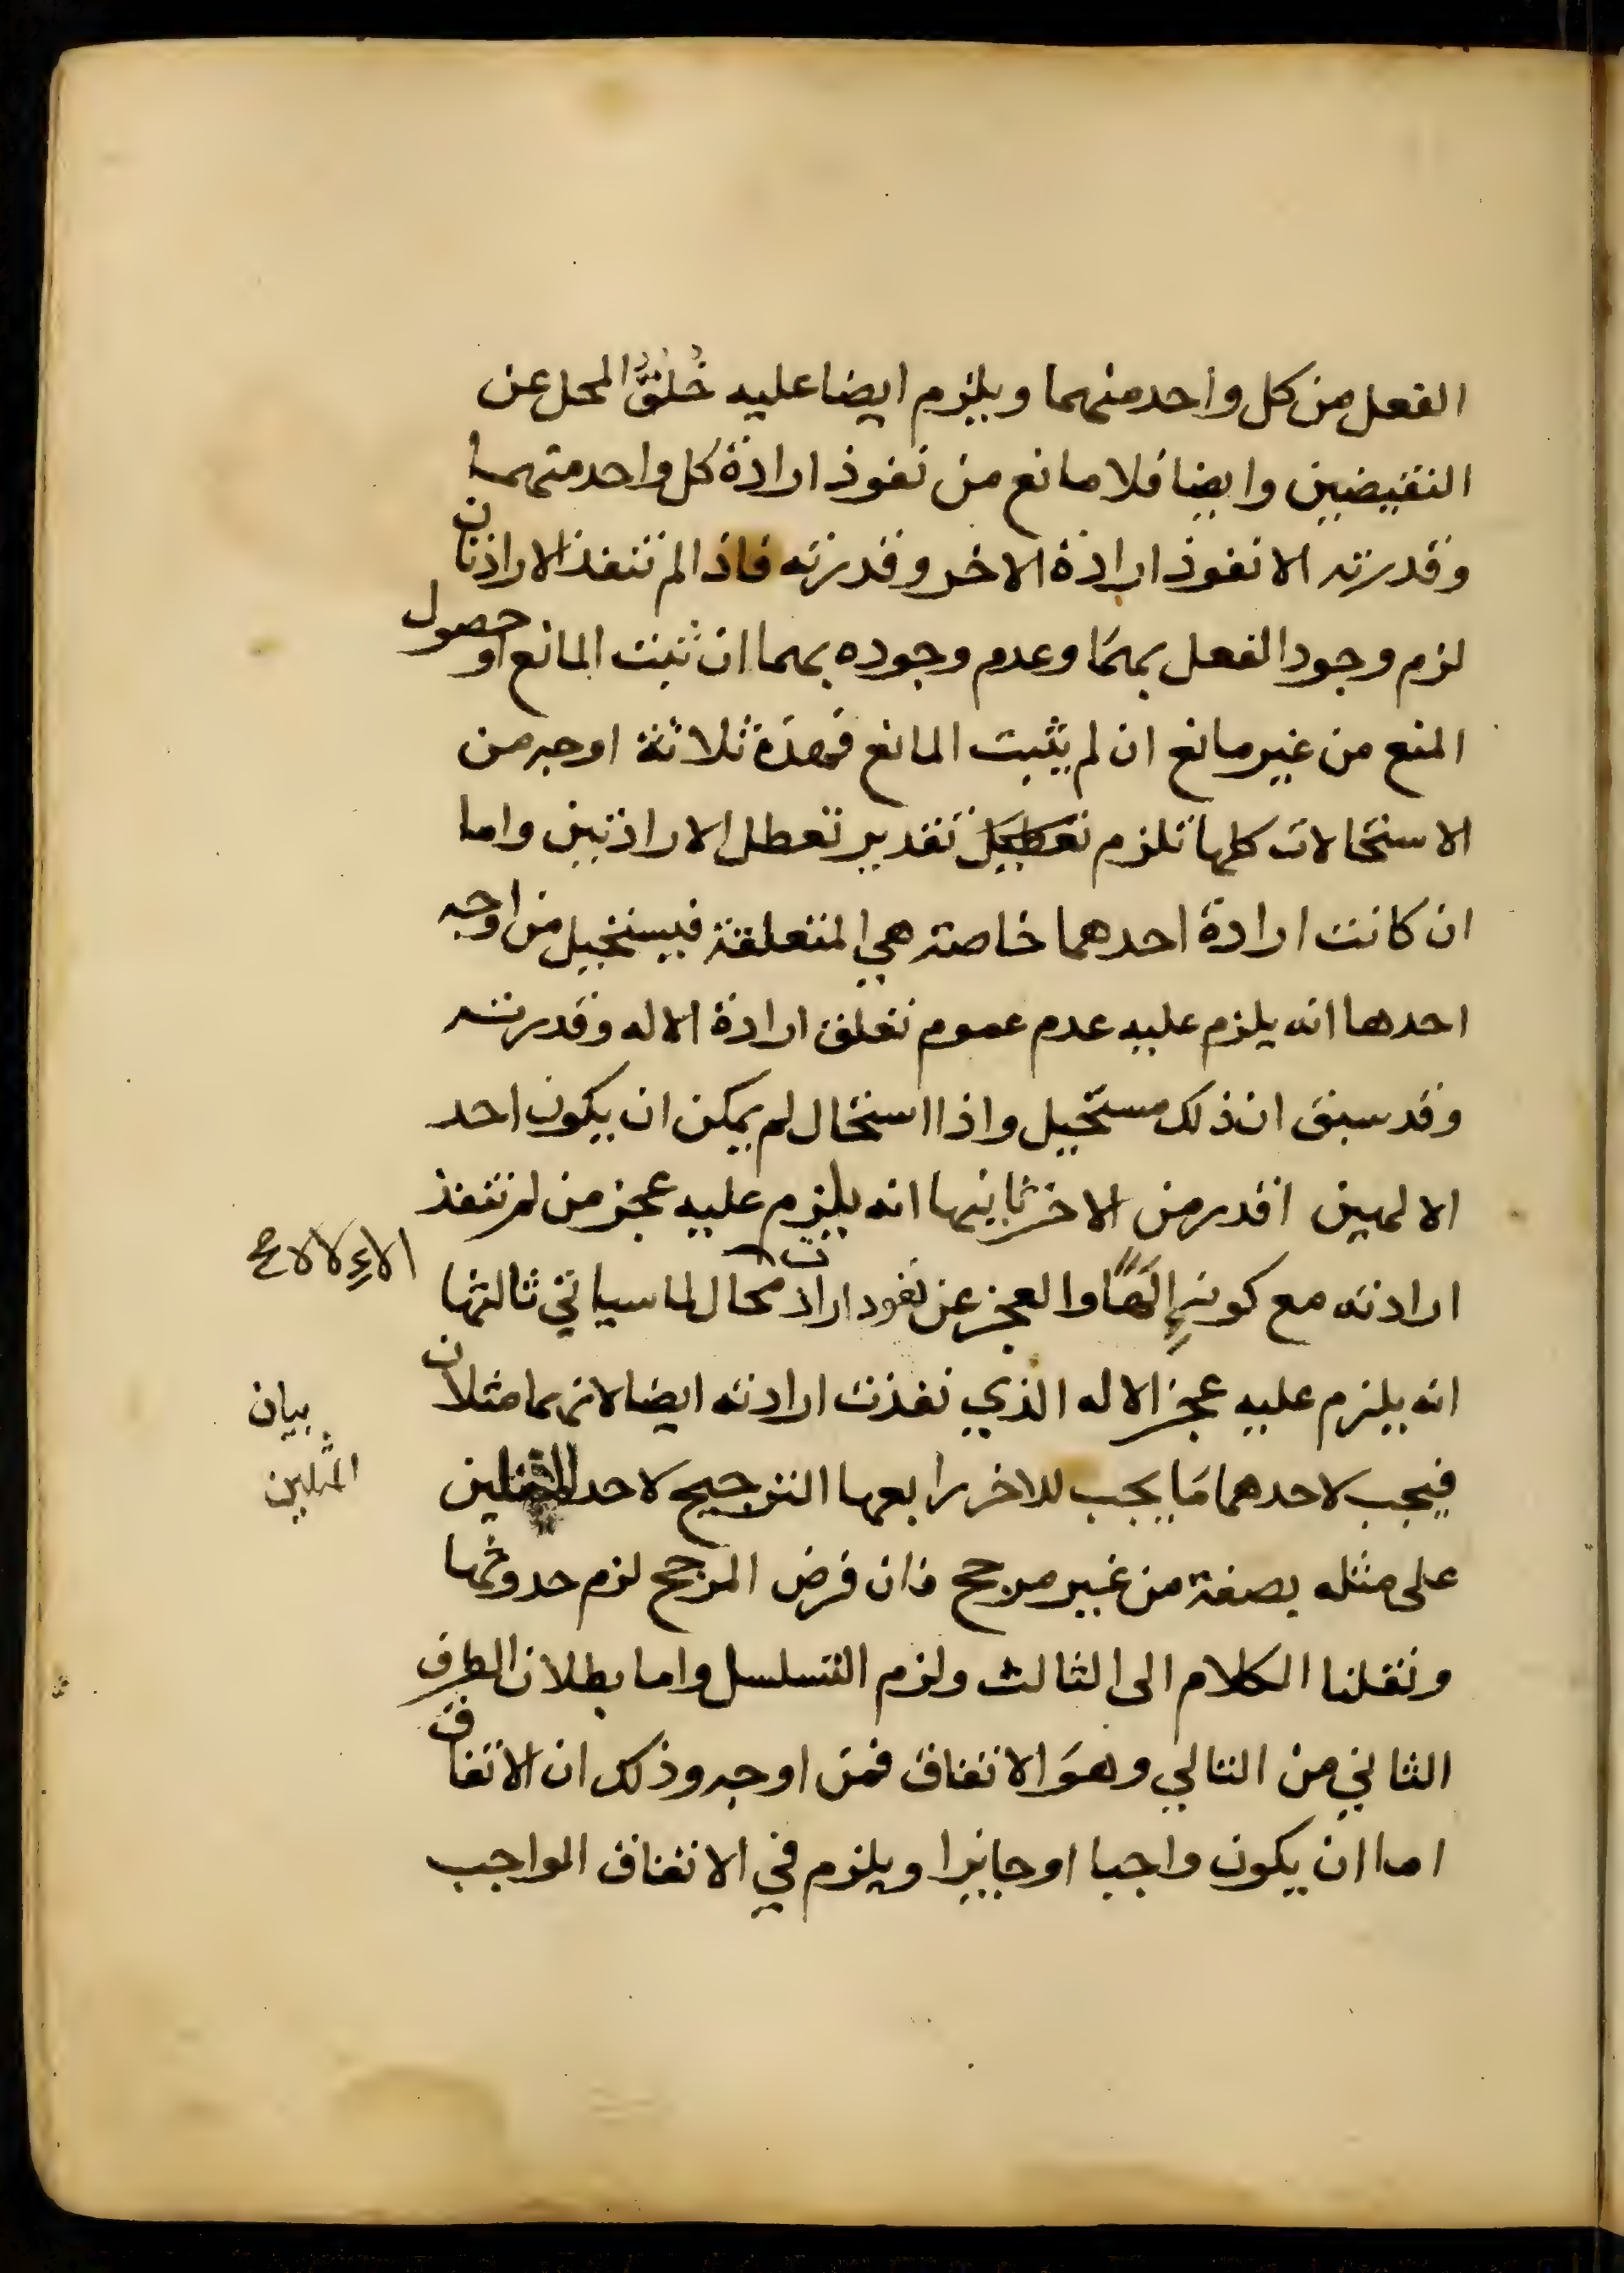 الفعل من كل واحد منهما ويلزم ايضا عليه خُلُوُّ المحل عن
النقيضين وايضا فلا مانع من نفوذ ارادة كل واحد منهما
وقدرته الا نفوذ ارادة الاخر وقدرته فاذا لم تنفذ الارادتان
لزم وجود الفعل بهما وعدم وجوده بهما ان ثبت المانع او حصول
المنع من غير مانع ان لم يثبت المانع فهذه ثلاثة اوجه من
الاستحالات كلها تلزم تقدير تعطل الارادتين واما
ان كانت ارادة احدهما خاصة هي المتعلقة فيستحيل من اوجه
احدها انه يلزم عليه عدم عموم تعلق ارادة الاله وقدرته
وقد سبق ان ذلك مستحيل واذا استحال لم يمكن ان يكون احد
الالهين اقدر من الاخر ثانيها انه يلزم عليه عجز من لم تنفذ
ارادته مع كونه إلهًا والعجز عن نفود ارادت محال لما سياتي ثالثها
الاءلالاح
انه يلزم عليه عجز الاله الذي نفذت ارادته ايضا لانهما مثلان
فيجب لاحدهما مَا يجب للاخر رابعها الترجيح لاحد المثلين
بيان
المثلين
على مثله بصفة من غير مرجح فان فرض المرجح لزم حدوثها
ونقلنا الكلام الى الثالث ولزم التسلسل واما بطلان الطرف
الثاني من التالي وهوَ الاتفاق فمن اوجه وذلك ان الاتفاق
اما ان يكون واجبا او جايزا ويلزم في الاتفاق الواجب